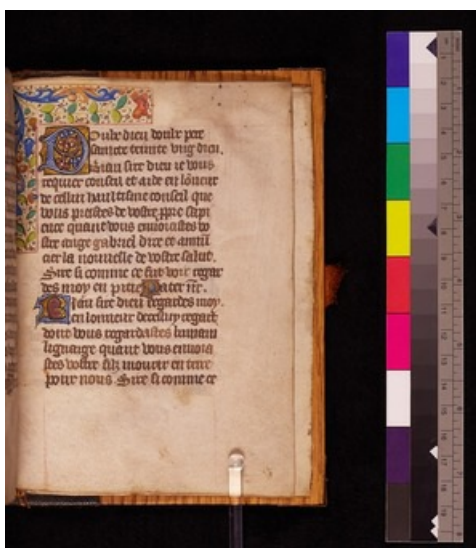 Doulz dieu doulz pere
saincte trinite ung dieu.
Biau sire dieu ie vous
requier conseil et aide en lõneur
de cellui hault conseil que
vous preistes de vostre ppre sapi
ence quant vous envoiastes vo
stre ange gabriel dire et anun
cier la nouvelle de vostre salut.
Sire si comme ce fut voir regar
des moy en pitie Pater nr̃.
Biau sire dieu regardes moy.
en lonneur de cellui regart
dont vous regardastes lumain
lignaige quant vous envoia
stes vostre filz mourir en terre
pour nous Sire si comme ce